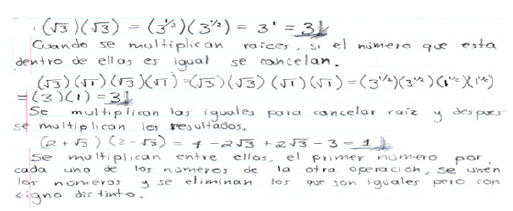 (√3)(√3) = (3^½)(3^½) = 3¹ = 3
Cuando se multiplican raices, si el número que esta
dentro de ellas es igual se cancelan.
(√3)(√1)(√3)(√1) = (√3)(√3)(√1)(√1) = (3^1/2)(3^1/2)(1^1/2)(1^1/2)
= (3)(1) = 3
Se multiplican las iguales para cancelar raiz y despues
se multiplican los resultados.
(2+√3)(2-√3) = 4 - 2√3 + 2√3 - 3 = 1
Se multiplican entre ellos, el primer número por
cada uno de los números de la otra operación, se unen
los números y se eliminan los que son iguales pero con
signo distinto.